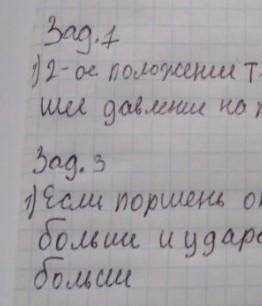 Зад. 1
1) 2-ое положении т
шее давление на
Зад. 3
1) Если поршень
больши и удар
больши